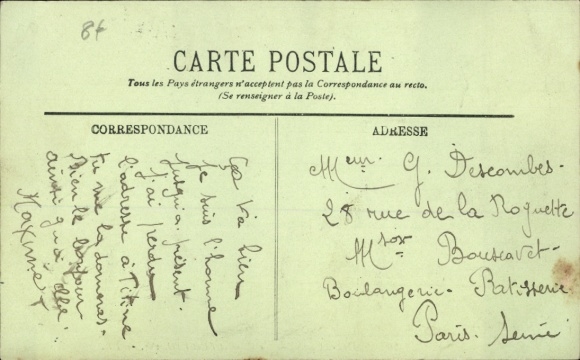 84
CARTE POSTALE
Tous les Pays étrangers n'acceptent pas la Correspondance au recto.
(Se renseigner à la Poste).
CORRESPONDANCE
Ça va bien
je suis l'homme
jusqu'a présent.
j'ai perdu
l'adresse à Titine.
tu me la donneras.
Bien le bonjour
ainsi qu'à elle.
Maxime
ADRESSE
Meur. G. Descombes.
28 rue de la Roquette
Mson Bouscavet.
Boulangerie. Patisserie
Paris. Seine